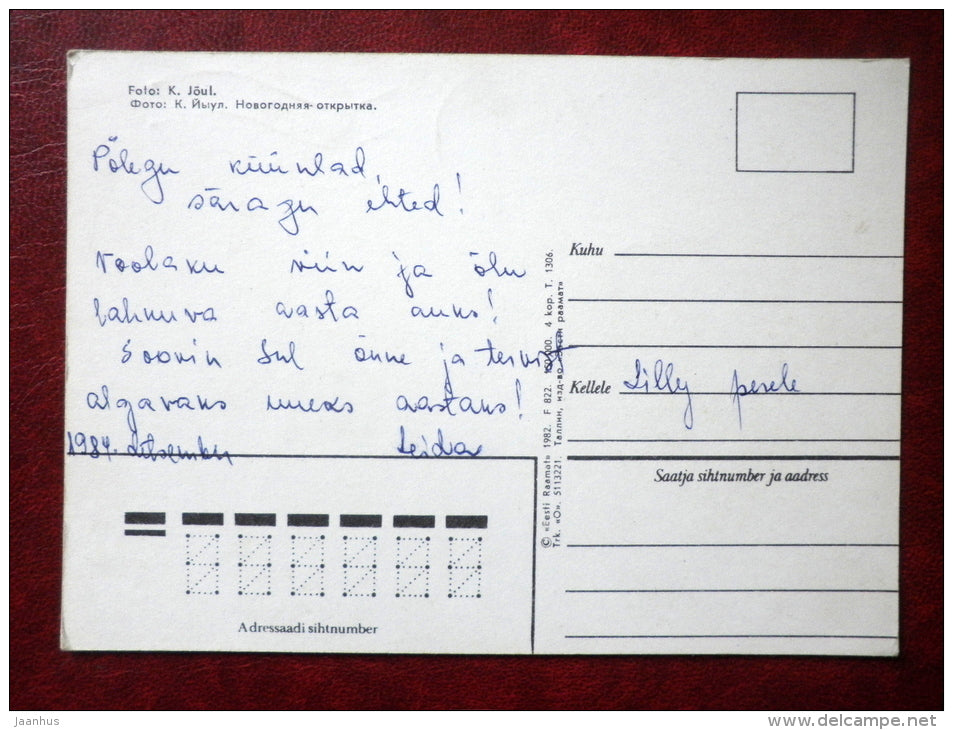 Foto: K. Jõul.
Фото: К. Йыул. Новогодняя-открытка.
Põlegu küünlad,
säragu ehted!
Voolaku viin ja õlu
lahkuva aasta auks!
Soovin Sul õnne ja tervist
algavaks uueks aastaks!
1984. detsember Leida
Kuhu
Kellele Lilly perele
Saatja sihtnumber ja aadress
© «Eesti Raamat» 1982. F 822. 4 kop. T. 1306.
Trk. «O». 5113221. Таллин, изд-во «Ээсти раамат»
Adressaadi sihtnumber
jaanhus
www.delcampe.net